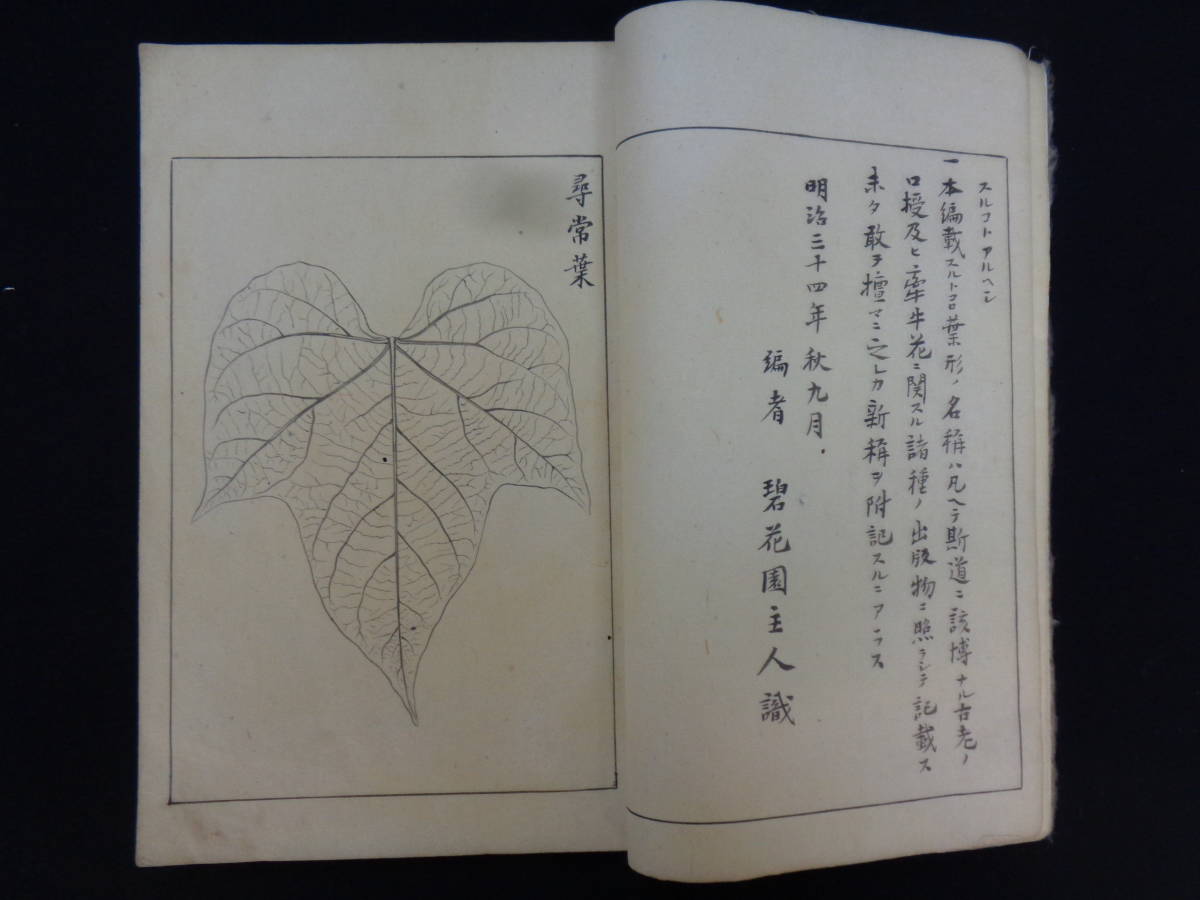 スルコトアルヘシ
一本編載スルトコロ葉形ノ名稱ハ凡ヘテ斯道ニ該博ナル古老ノ
口授及ヒ牽牛花ニ関スル諸種ノ出版物ニ照ラシテ記載ス
未タ敢テ擅マニ之レカ新稱ヲ附記スルニアラス
明治三十四年秋九月.
編者 碧花園主人識
尋常葉